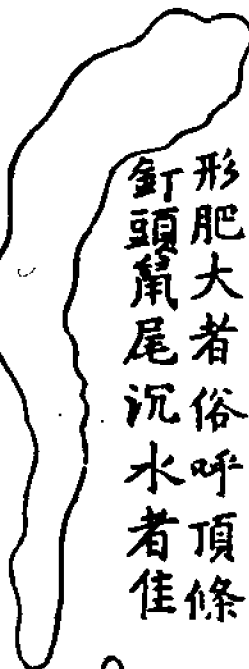 形肥大者俗呼頂條
釘頭鼠尾沉水者佳